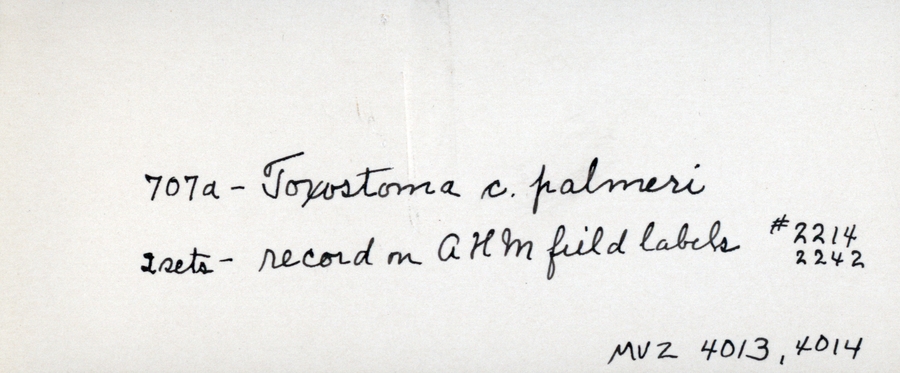 707a - Toxostoma c. palmeri
2 sets - record on AHM field labels #2214
2242
MVZ 4013, 4014